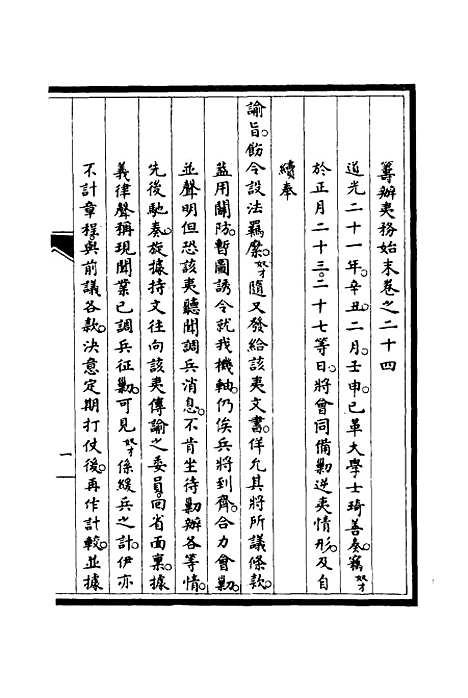 籌辦夷務始末卷之二十四
道光二十一年。辛丑。二月。壬申。已革大學士琦善奏。竊奴才
於正月二十三。二十七等日。將會同備勦逆夷情形。及自
續奉
諭旨。飭令設法羈縻。奴才隨又發給該夷文書。佯允其將所議條款。
蓋用關防。暫圖誘令就我機軸。仍俟兵將到齊。合力會勦。
並聲明但恐該夷聽聞調兵消息。不肯坐待勦辦各等情。
先後馳奏。旋據持文往向該夷傳諭之委員。回省面稟。據
義律聲稱現聞業已調兵征勦。可見奴才係緩兵之計。伊亦
不計章程與前議各款。決意定期打仗後。再作計較。並據
一